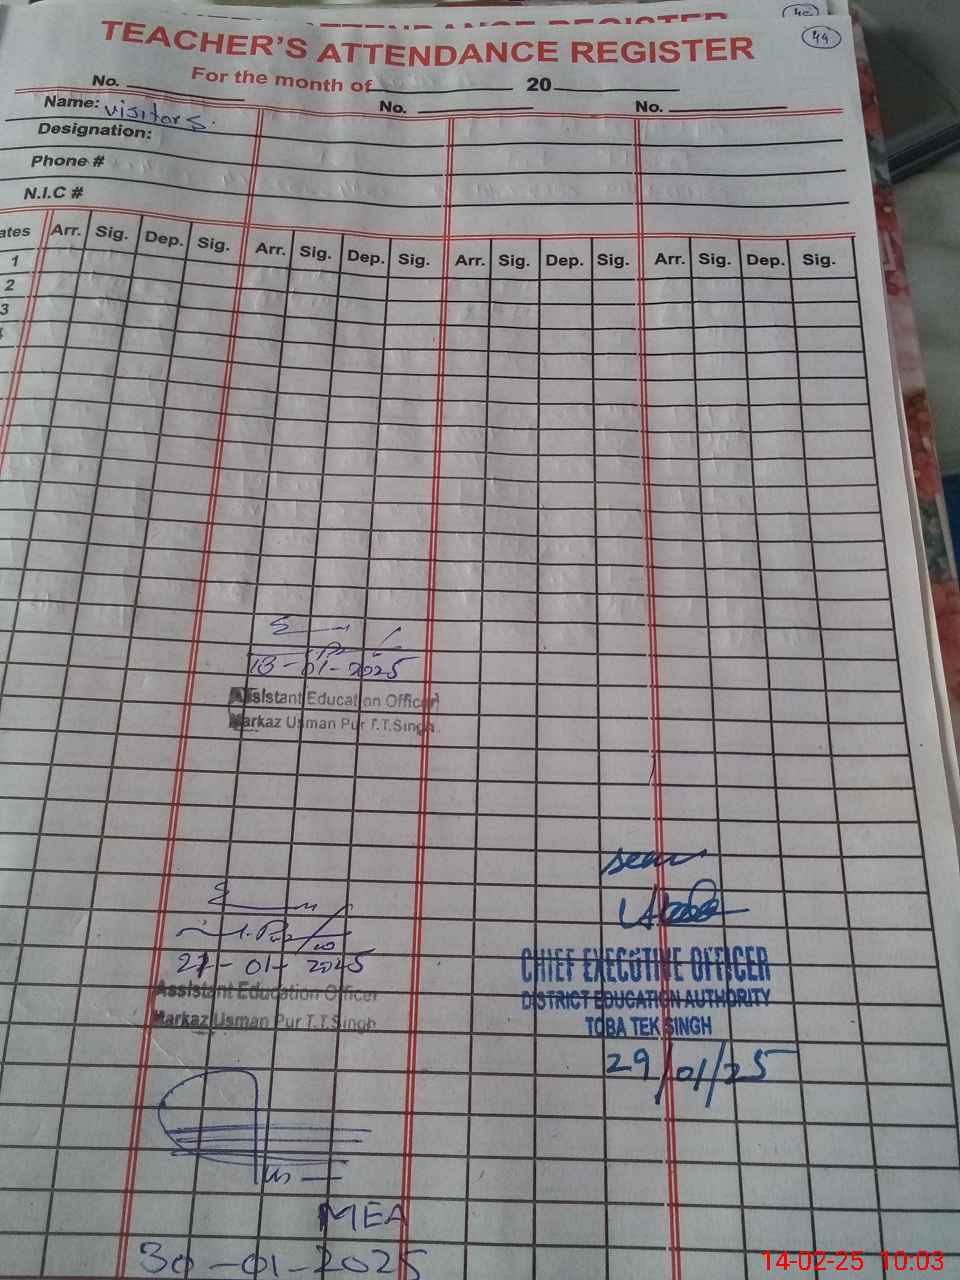 49
TEACHER'S ATTENDANCE REGISTER
For the month of 20
No. No. No.
Name: visitors.
Designation:
Phone #
N.I.C #
ates Arr. Sig. Dep. Sig. Arr. Sig. Dep. Sig. Arr. Sig. Dep. Sig. Arr. Sig. Dep. Sig.
1
2
3
13-01-2025
Assistant Education Officer
Markaz Usman Pur T.T.Singh
seen
27-01-2025
Assistant Education Officer
Markaz Usman Pur T.T.Singh
CHIEF EXECUTIVE OFFICER
DISTRICT EDUCATION AUTHORITY
TOBA TEK SINGH
29/01/25
MEA
30-01-2025
14-02-25 10:03